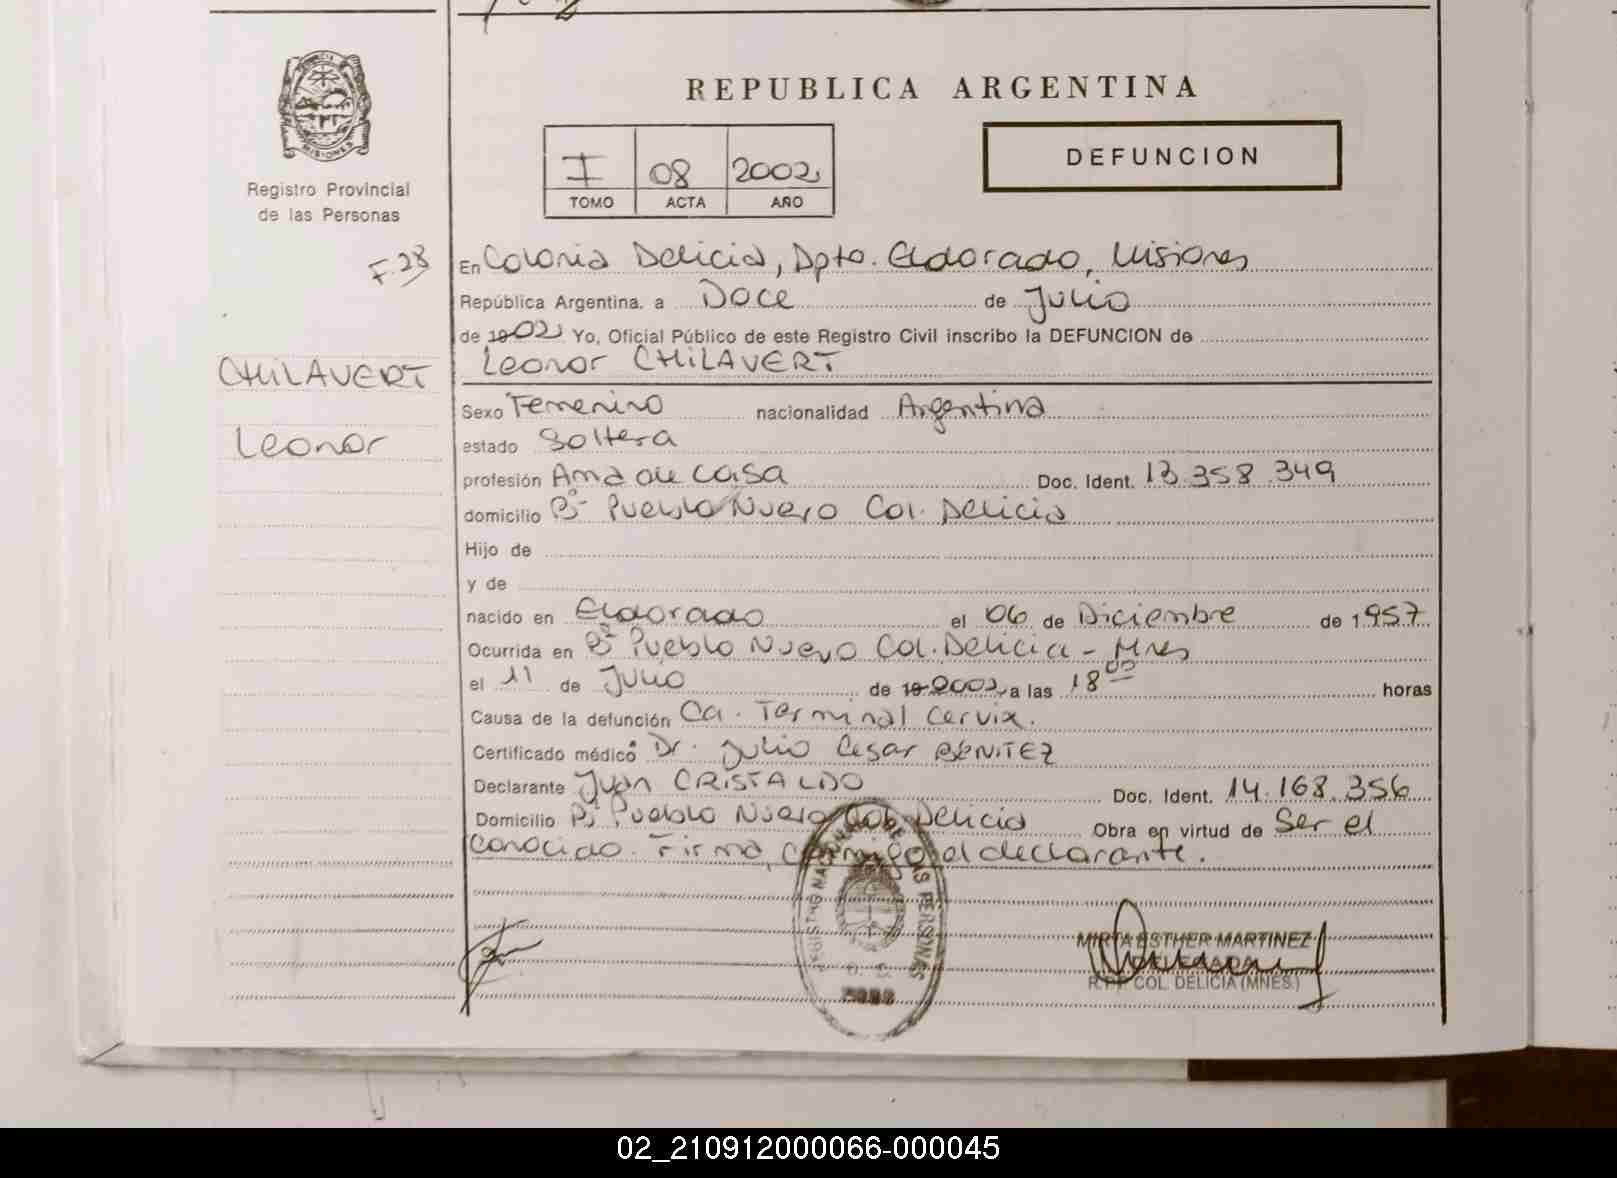 MISIONES
Registro Provincial
de las Personas
F.28
CHILAVERT
Leonor
REPUBLICA ARGENTINA
I 08 2002
TOMO ACTA AÑO
DEFUNCION
En Colonia Delicia, Dpto. Eldorado, Misiones
República Argentina, a Doce de Julio
de 1902 Yo, Oficial Público de este Registro Civil inscribo la DEFUNCION de
Leonor CHILAVERT
Sexo Femenino nacionalidad Argentina
estado Soltera
profesión Ama de casa Doc. Ident. 13.358.349
domicilio Bº Pueblo Nuevo Col. Delicia
Hijo de
y de
nacido en Eldorado el 06 de Diciembre de 1957
Ocurrida en Bº Pueblo Nuevo Col. Delicia - Mnes
el 11 de Julio de 19 2002 a las 18 00 horas
Causa de la defunción Ca. Terminal Cervix.
Certificado médico Dr. Julio Cesar BENITEZ
Declarante Juan CRISTALDO Doc. Ident. 14.168.356
Domicilio Bº Pueblo Nuevo Col. Delicia Obra en virtud de Ser el
conocido. Firma, conmigo el declarante.
REGISTRO NACIONAL DE LAS PERSONAS
MIRTA ESTHER MARTINEZ
DELEGADA
R.P.P. COL. DELICIA (MNES.)
02_210912000066-000045